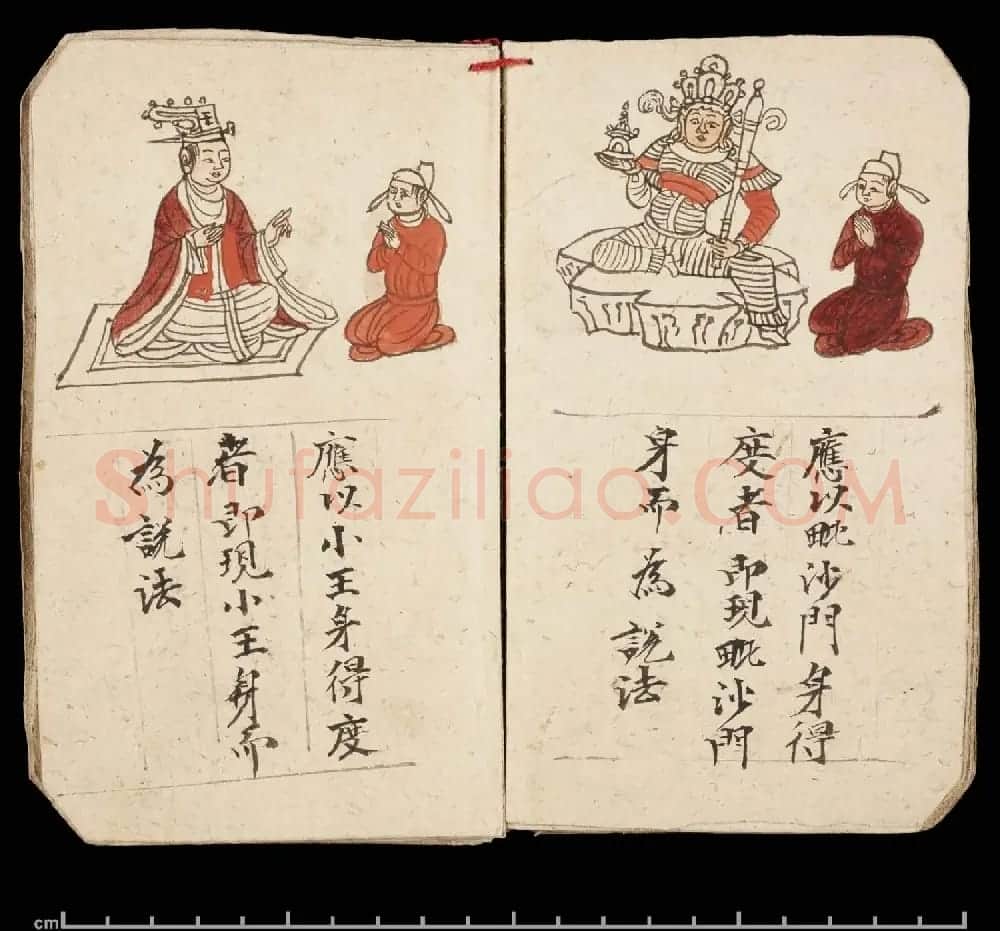 應以毗沙門身得
度者即現毗沙門
身而為説法
應以小王身得度
者即現小王身而
為説法
Shufaziliao.COM
cm